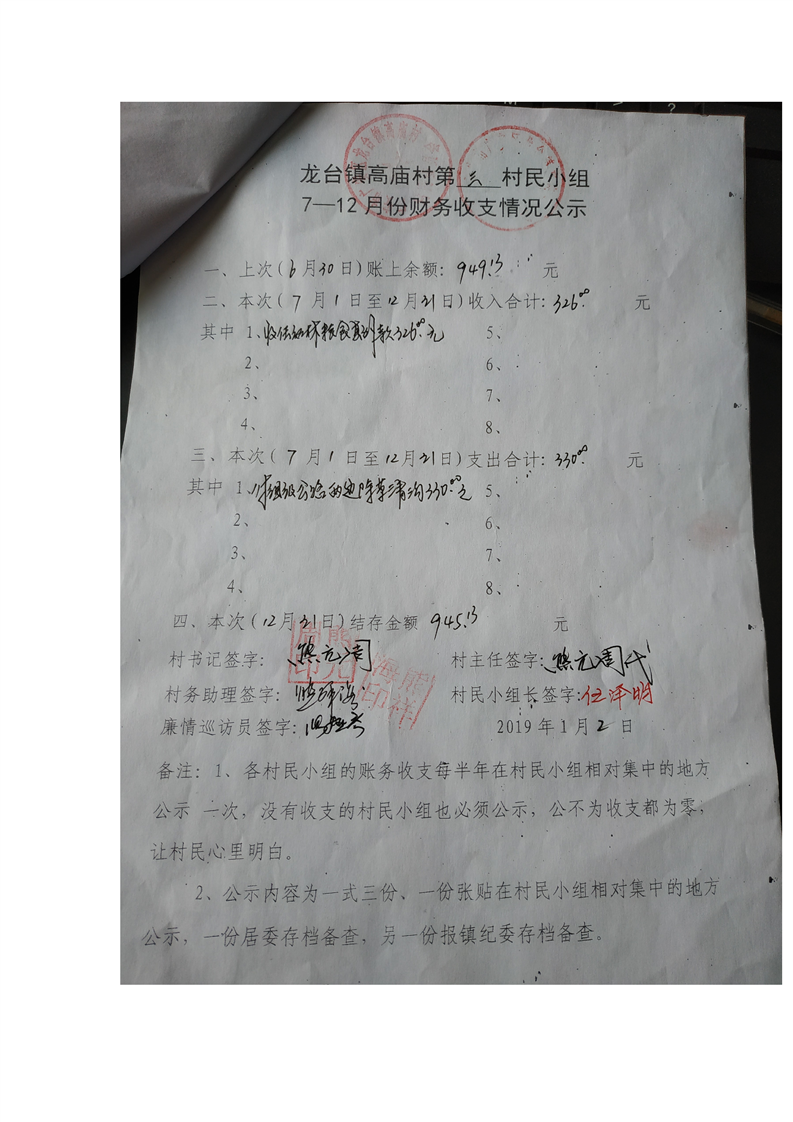 龙台镇高庙村第 三 村民小组
7—12月份财务收支情况公示
一、上次(6月30日)账上余额：949.13 元
二、本次(7月1日至12月31日)收入合计：326.00 元
其中 1、收 326.00元 5、
2、 6、
3、 7、
4、 8、
三、本次(7月1日至12月31日)支出合计：330.00 元
其中 1、组级公路两边除草清沟330.00元 5、
2、 6、
3、 7、
4、 8、
四、本次(12月31日)结存金额 945.13 元
村书记签字：熊元周 村主任签字：熊元周代
村务助理签字： 村民小组长签字：任泽明
廉情巡访员签字： 2019年1月2日
备注：1、各村民小组的账务收支每半年在村民小组相对集中的地方
公示 一次，没有收支的村民小组也必须公示，公不为收支都为零，
让村民心里明白。
2、公示内容为一式三份、一份张贴在村民小组相对集中的地方
公示，一份居委存档备查，另一份报镇纪委存档备查。